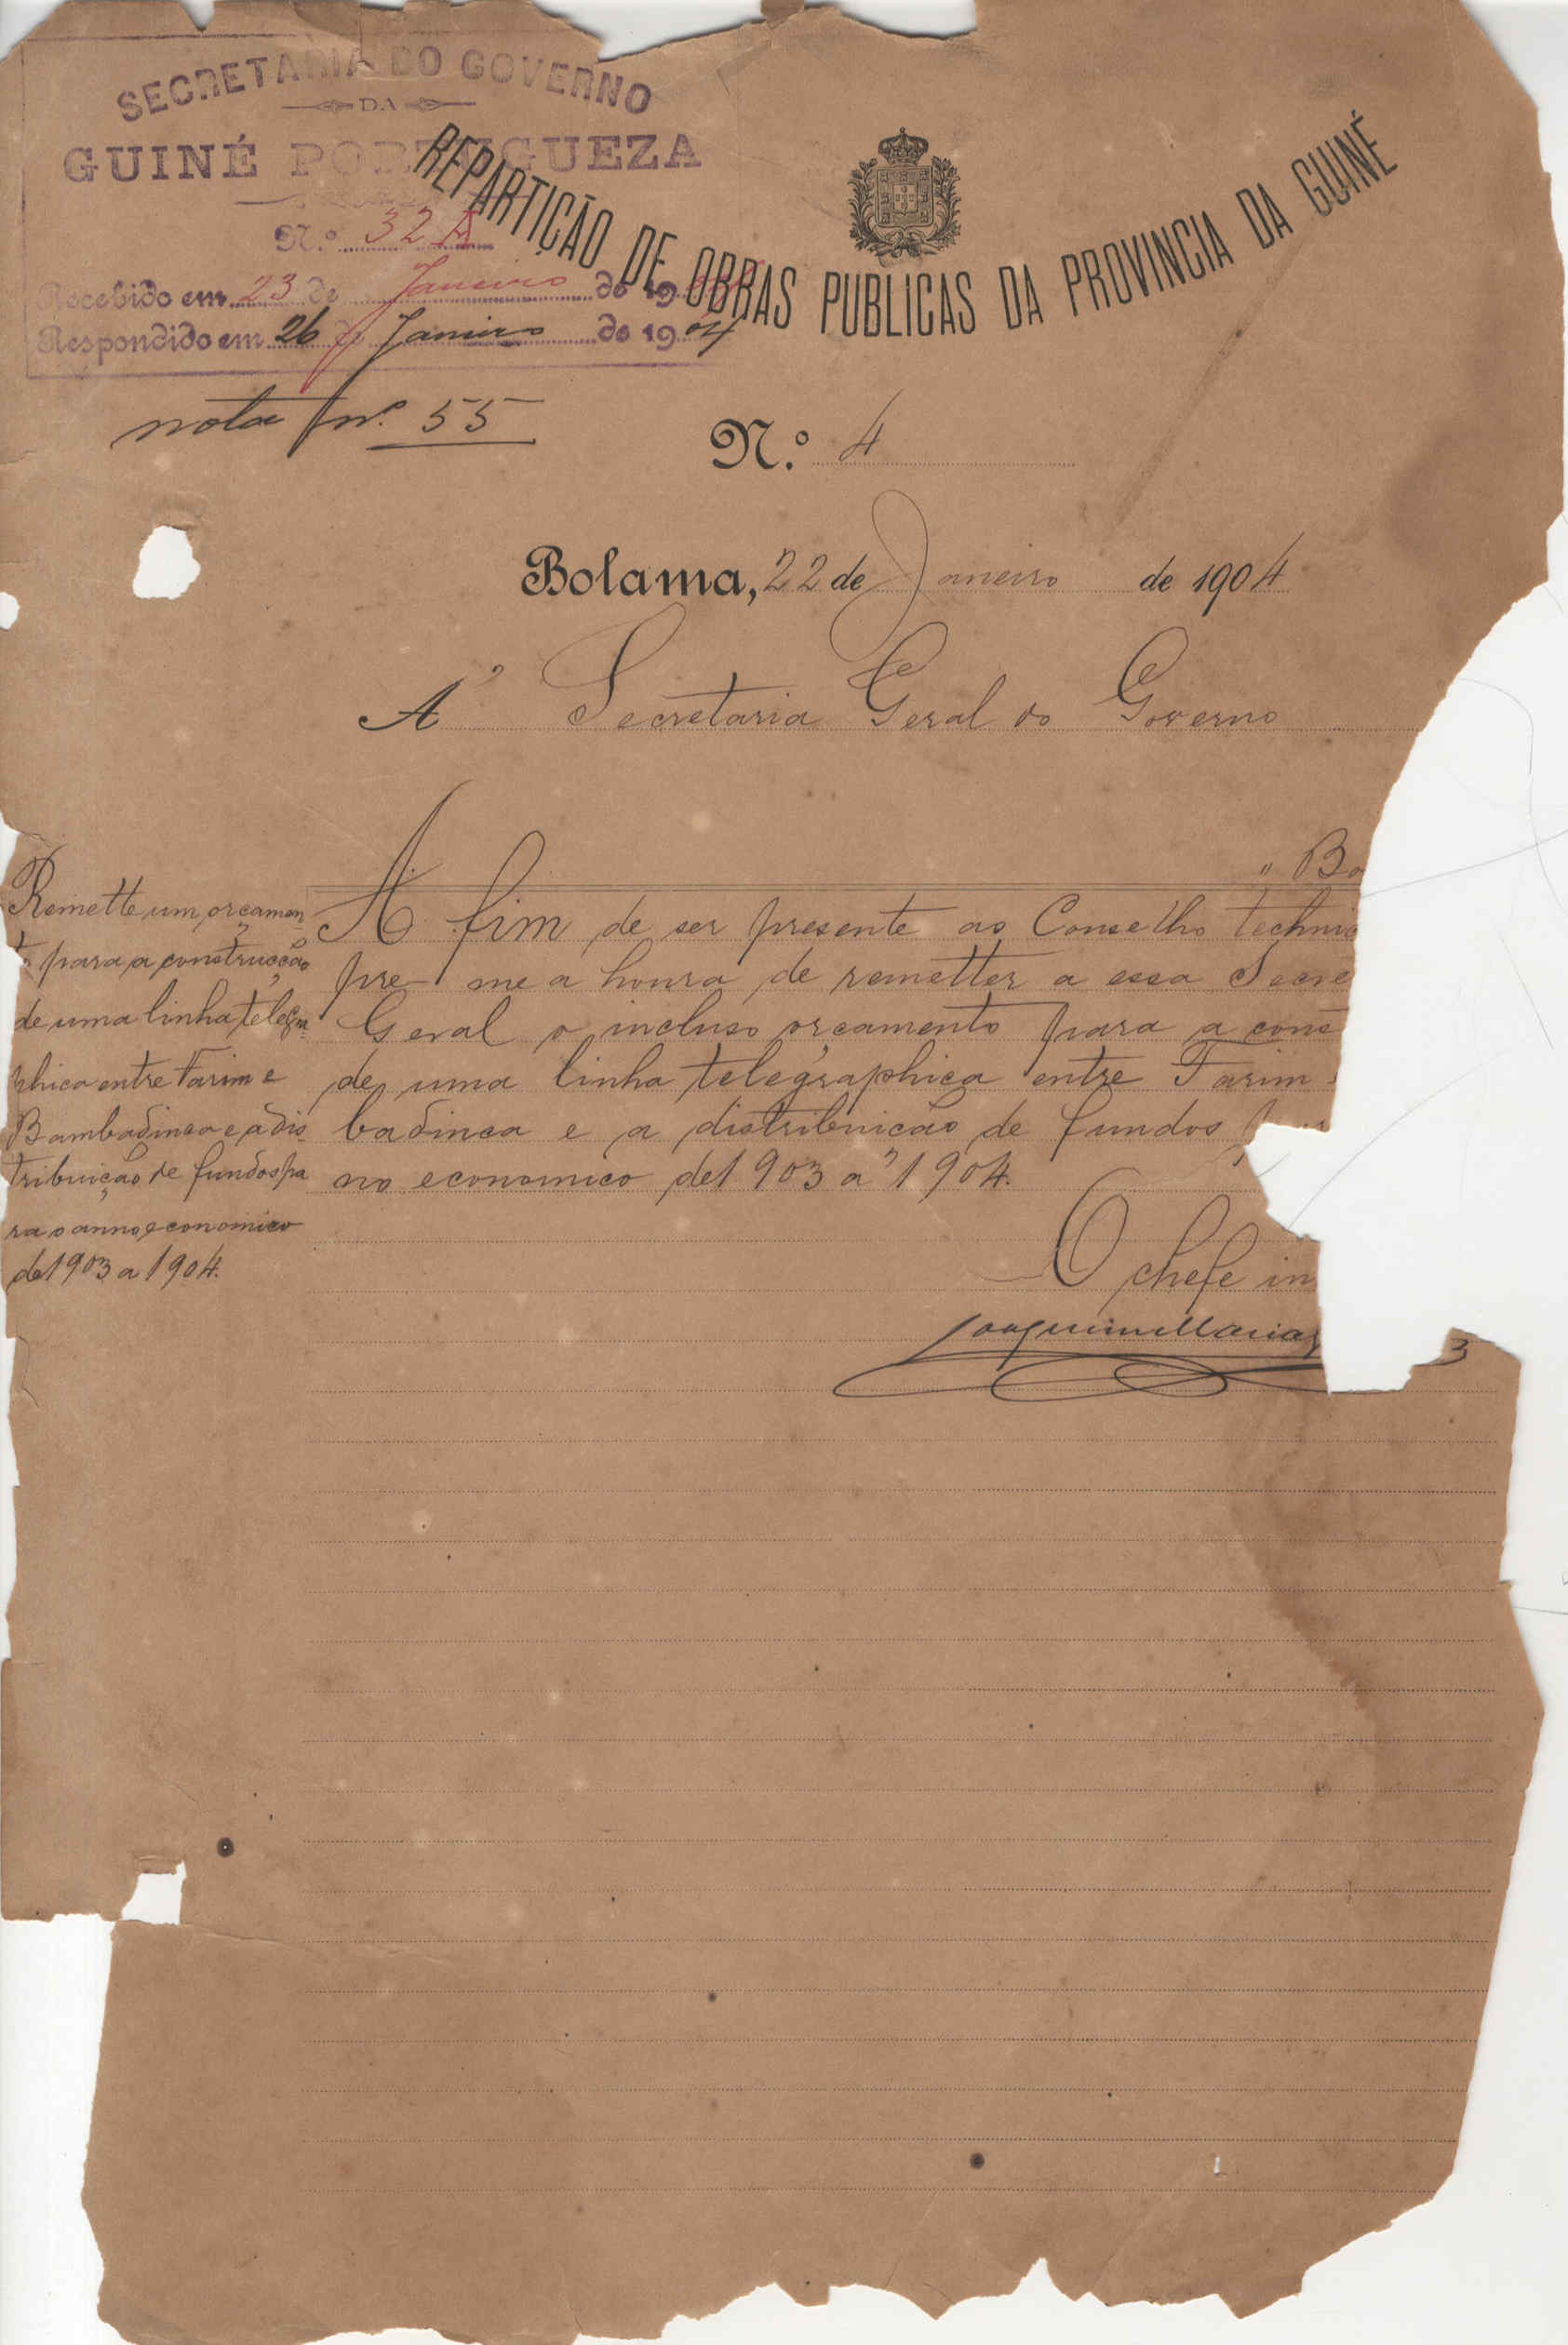 SECRETARIA DO GOVERNO
DA
GUINÉ PORTUGUEZA
N.º 32 A
Recebido em 23 de Janeiro de 1904
Respondido em 26 de Janeiro de 1904
nota nº. 55
REPARTIÇÃO DE OBRAS PUBLICAS DA PROVINCIA DA GUINÉ
N.º 4
Bolama, 22 de Janeiro de 1904
A' Secretaria Geral do Governo
" Bo
Remette um orçamen
to para a construcção
de uma linha telegra
phica entre Farim e
Bambadinca e a dis
tribuição de fundos pa
ra o anno economico
de 1903 a 1904.
A fim de ser presente ao Conselho technic
me a honra de remetter a essa Secre
Geral o incluso orçamento para a cons
de uma linha telegraphica entre Farim
badinca e a distribuição de fundos
no economico de 1903 a 1904.
O chefe in
Joaquim Maria
3